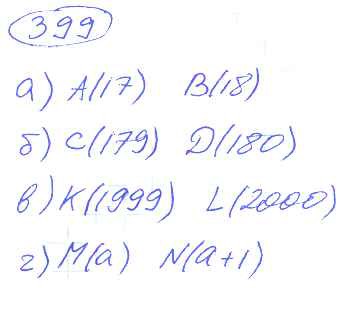 399
а) A(17) B(18)
б) C(179) D(180)
в) K(1999) L(2000)
г) M(a) N(a+1)